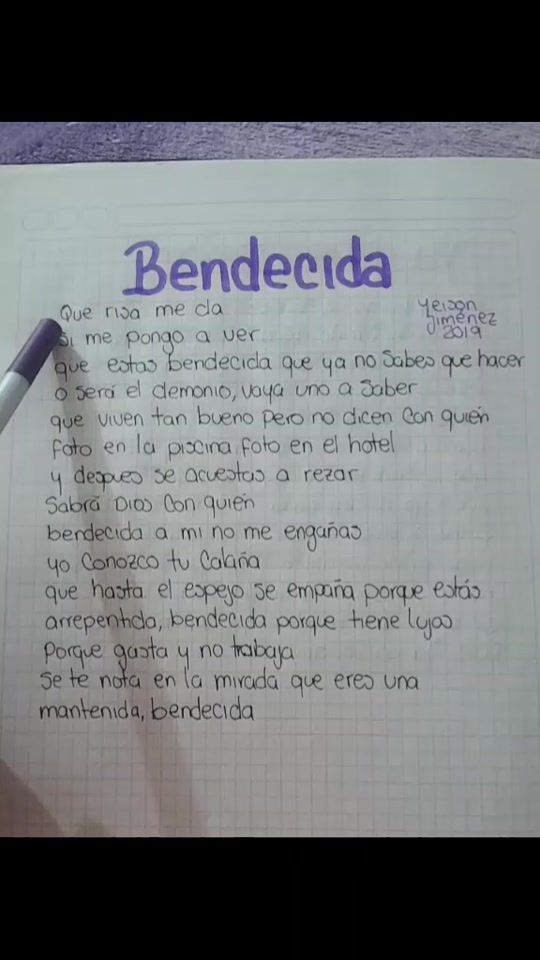 Bendecida
Que risa me da
Yeison
Jiménez
2019
si me pongo a ver
que estas bendecida que ya no sabes que hacer
o será el demonio, vaya uno a saber
que viven tan bueno pero no dicen con quién
foto en la piscina, foto en el hotel
y despues se acuestas a rezar
Sabrá Dios con quién
bendecida a mi no me engañas
yo conozco tu calaña
que hasta el espejo se empaña porque estás
arrepentida, bendecida porque tiene lujos
Porque gasta y no trabaja
Se te nota en la mirada que eres una
mantenida, bendecida